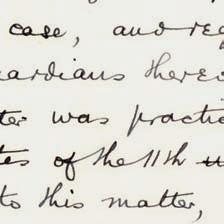 case, and reg
ardians thereo
ter was practic
tes of the 11th
to this matter,